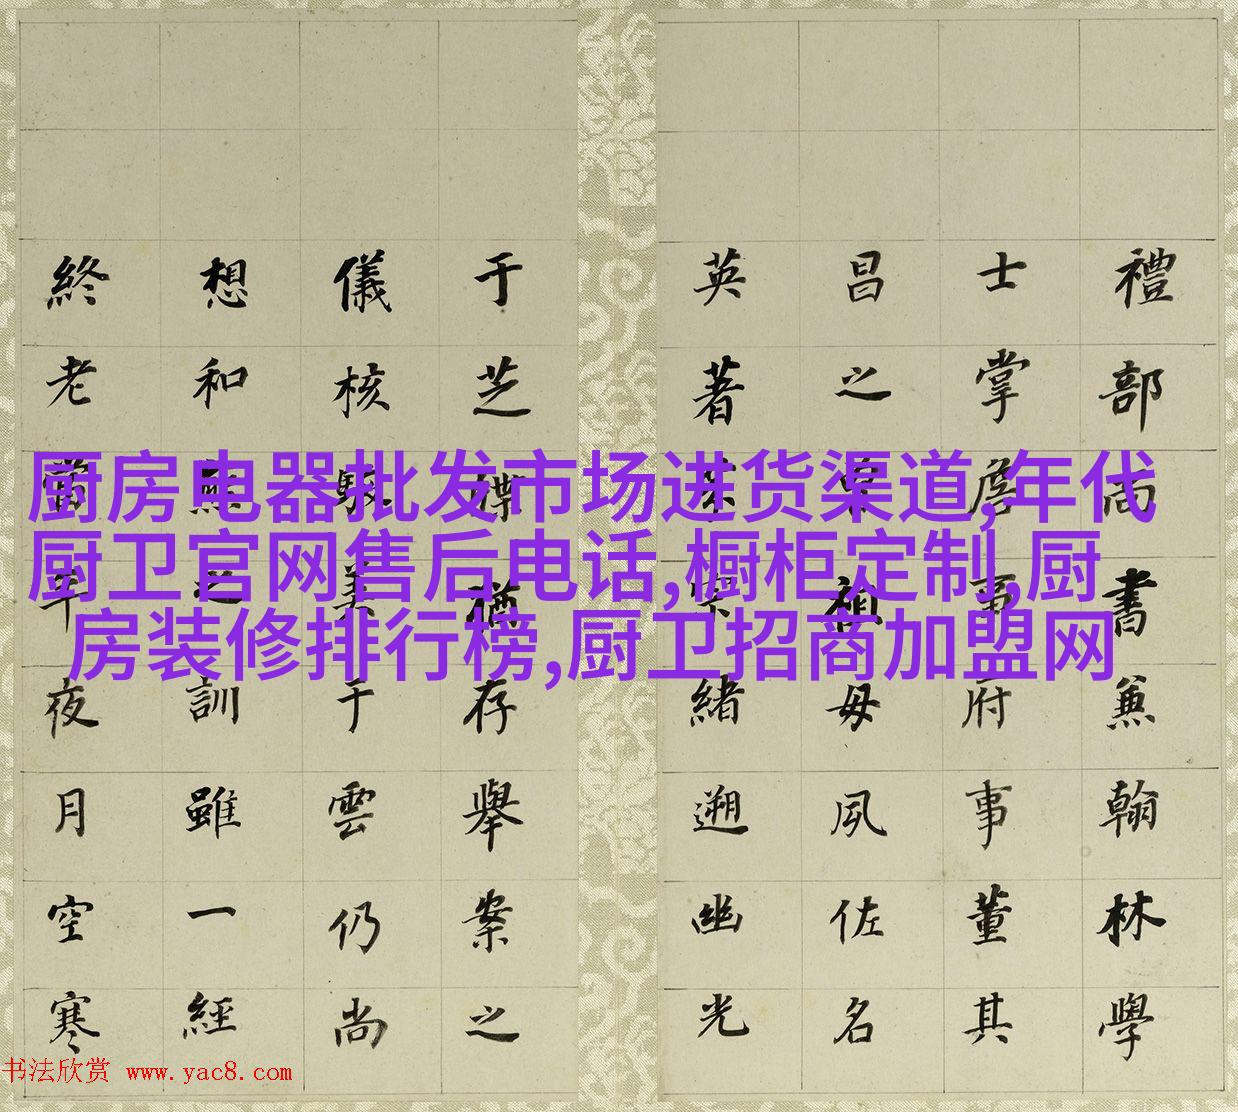 禮部尚書兼翰林學
士掌詹事府事董其
昌之祖母夙佐名
英著緒遡幽光
于芝猶存舉案之
儀核美于雲仍尚
想和熊之訓雖一經
終老年夜月空寒
厨房电器批发市场进货渠道,年代
厨卫官网售后电话,橱柜定制,厨
房装修排行榜,厨卫招商加盟网
书法欣赏 www.yac8.com